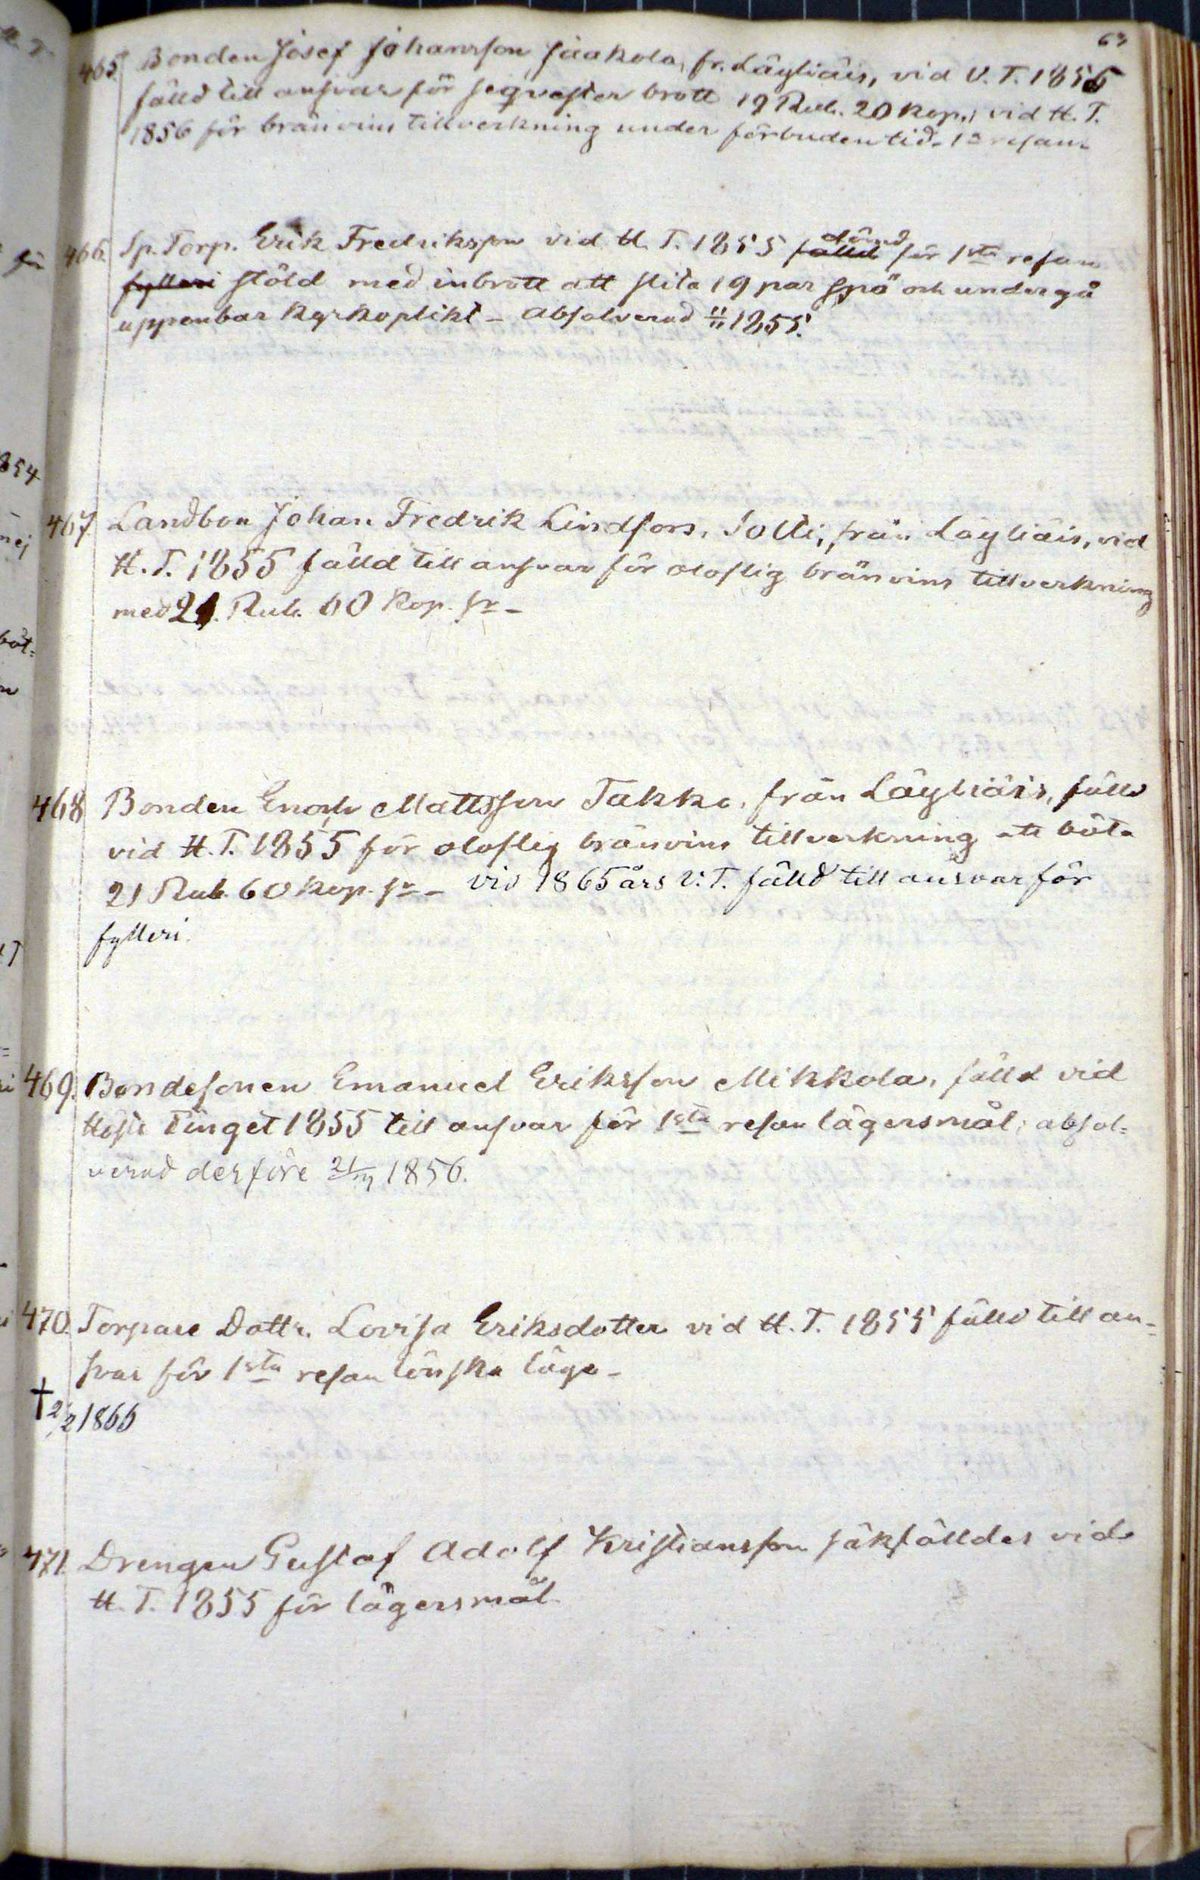 63
465 Bonden Josef Johansson Jaakola, fr. Läyliäis, vid V. T. 1856
fälld till ansvar för seqvester brott 19 Rub. 20 Kop., vid H. T.
1856 för bränvins tillverkning under förbuden tid. 1a resan
466. Sp. Torp. Erik Fredriksson vid H. T. 1855 fälld dömd för 1sta resan
fylleri stöld med inbrott att slita 19 par spö och undergå
uppenbar Kyrkoplikt – absolverad 11/11 1855.
467 Landbon Johan Fredrik Lindfors, Solli, från Läyliäis, vid
H. T. 1855 fälld till ansvar för oloflig bränvins tillverkning
med 21. Rub. 60 Kop. sr –
468 Bonden Enoch Mattsson Takko, från Läyliäis, fälld
vid H. T. 1855 för oloflig bränvins tillverkning att böta
21 Rub. 60 Kop. sr – vid 1865 års V. T. fälld till ansvar för
fylleri.
469. Bondesonen Emanuel Eriksson Mikkola, fälld vid
Höste Tinget 1855 till ansvar för 1sta resan lägersmål; absol=
verad derföre 1856.
470. Torpare Dottr. Lovisa Eriksdotter vid H. T. 1855 fälld till an=
svar för 1sta resan lönska läge –
† 2/2 1866
471 Drengen Gustaf Adolf Kristiansson sakfälldes vid
H. T. 1855 för lägersmål.